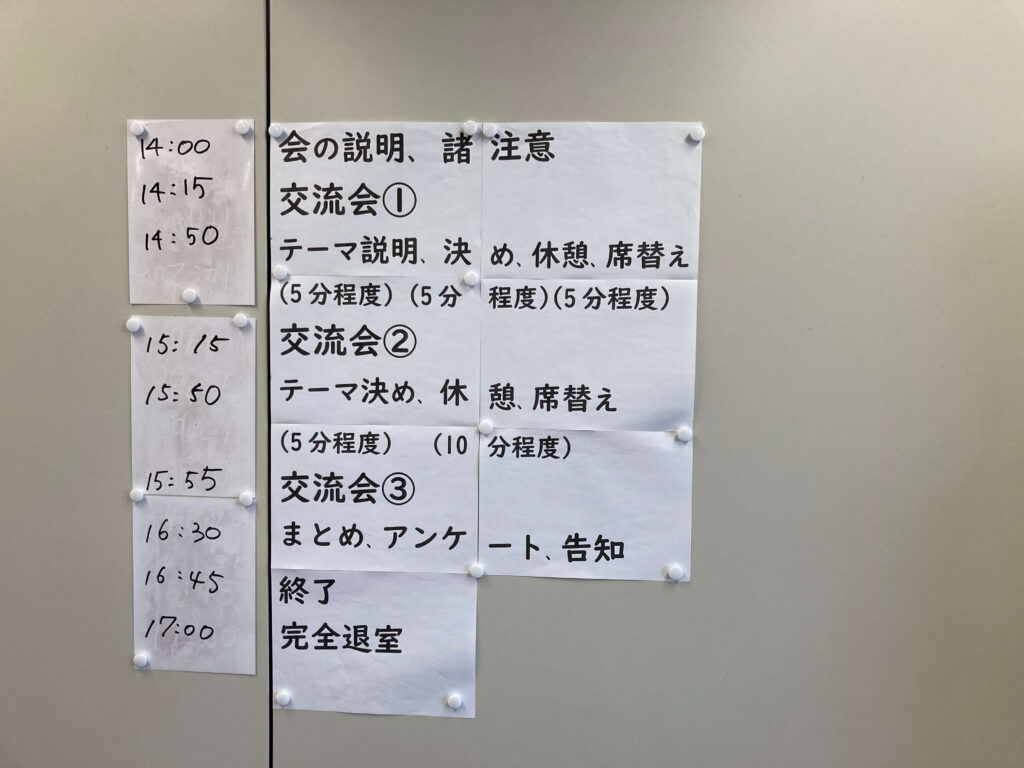 14:00 会の説明、諸注意
14:15 交流会①
14:50 テーマ説明、決め、休憩、席替え
(5分程度) (5分程度)(5分程度)
15:15 交流会②
15:50 テーマ決め、休憩、席替え
(5分程度) (10分程度)
15:55 交流会③
16:30 まとめ、アンケート、告知
16:45 終了
17:00 完全退室